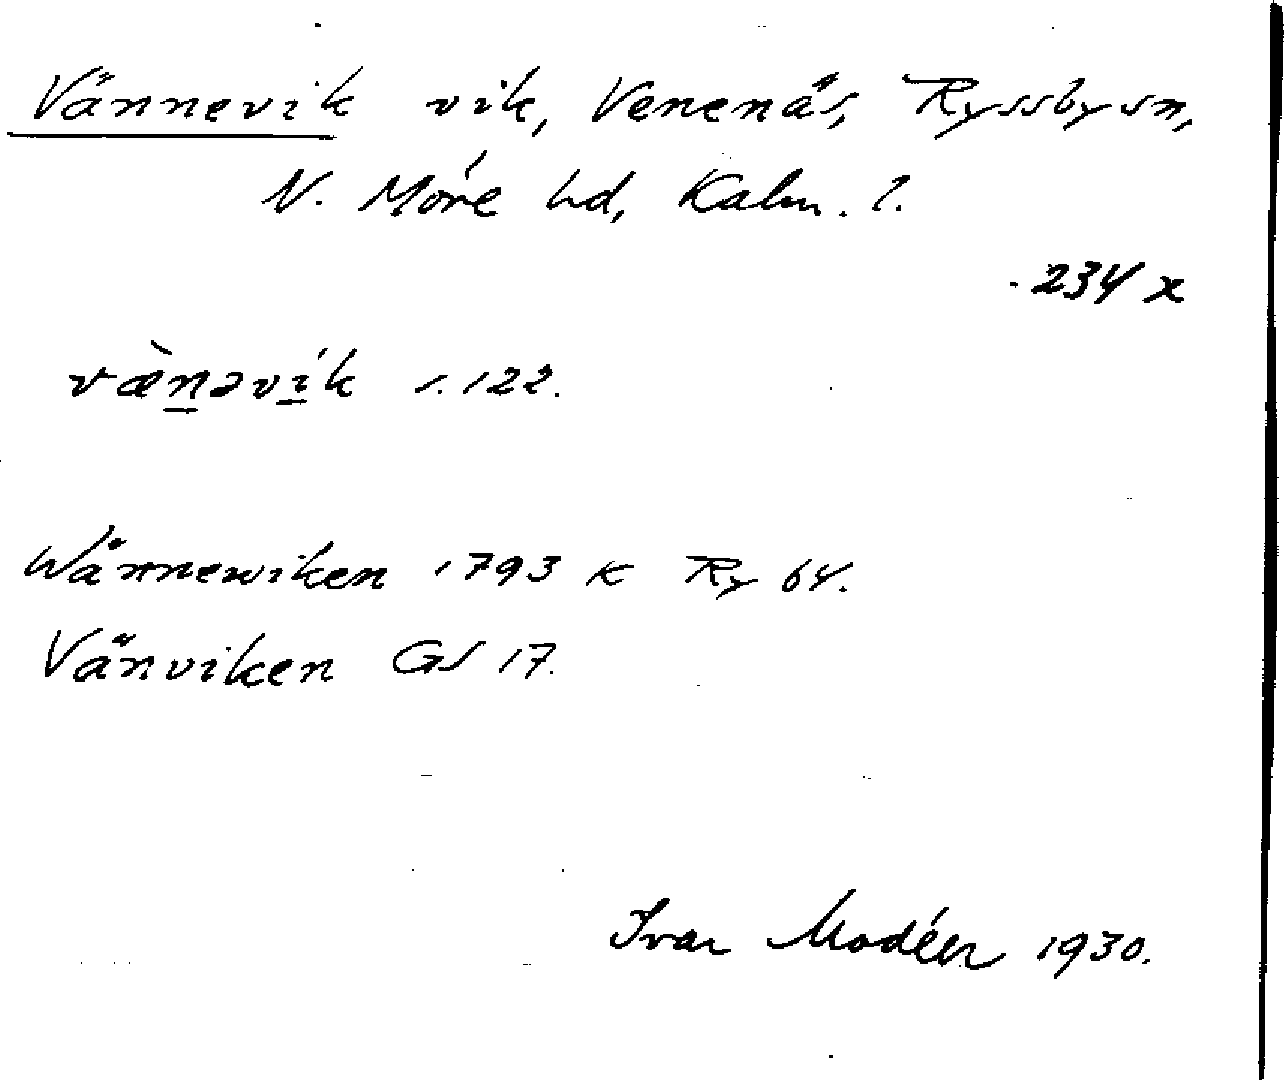 Vännevik vik, Venenäs, Ryssby sn,
N. Möre hd, Kalm. l.
234 x
væ̀nəvík 1.122.
Wännewiken 1793 K Ry 64.
Vänviken GS 17.
Ivar Modéer 1930.